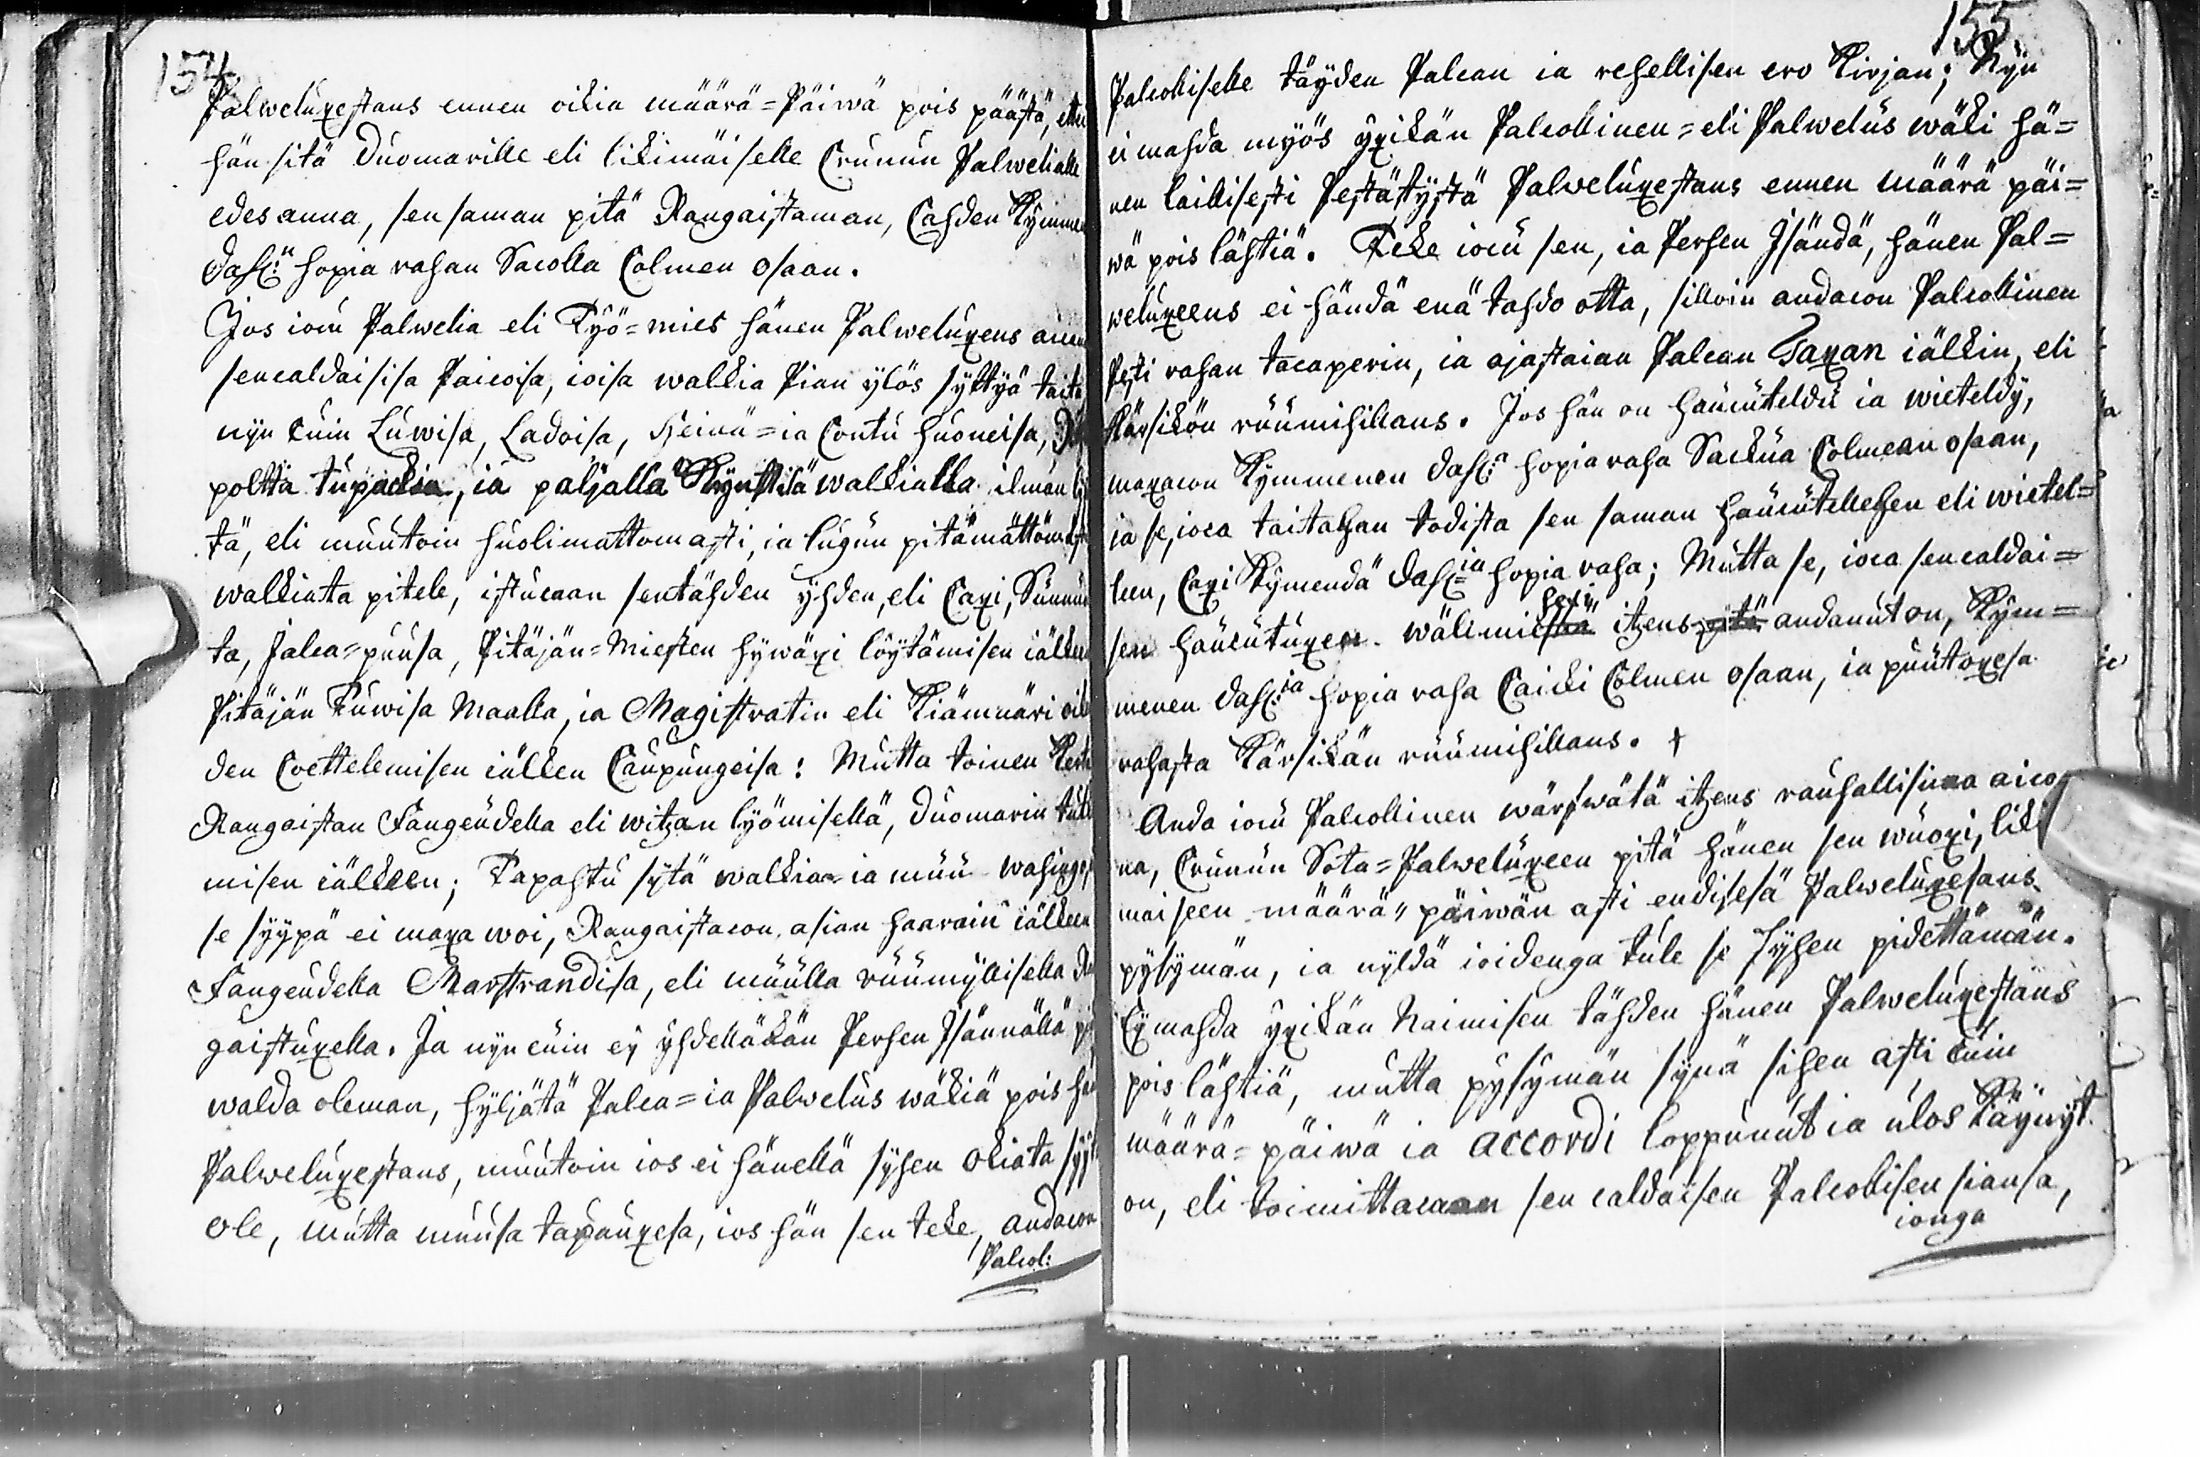 154
Palweluxestans ennen oikia määrä=Päiwä pois päästä, ettei
hän sitä Duomarille eli likimäiselle Crunun Palwelialle
edes anna, sen saman pitä Rangaistaman, Cahden Kymmen
Dahl:n hopia rahan Sacolla Colmen osaan.
Jos iocu Palwelia eli Työ=mies hänen Palweluxens aicana
sencaldaisisa Paicoisa, ioisa walkia Pian ylös syttyä taita
nijn cuin Luwisa, Ladoisa, Heinä=ia Contu huoneisa,
poltta tupackia, ia paljalla Kynttilä walkialla ilman
tä, eli muutoin huolimattomasti, ia lugun pitämättömäst
walkiata pitele, istucaan sentähden yhden, eli Caxi, Sunnun
ta, Jalca=puusa, Pitäjän=Miesten hywäxi löytämisen iälkeen
Pitäjän Tuwisa Maalla, ia Magistratin eli Kiämnäri oik
den Coettelemisen iälken Caupungeisa: Mutta toinen Kerta
Rangaistan Fangeudella eli witzan lyömisellä, Duomarin tutk
misen iälkeen; Tapahtu sytä walkian ia muu wahingo,
se syypä ei maxa woi, Rangaistacon, asian haarain iälkeen
Fangeudella Marstrandisa, eli muulla ruumyllisella Ran
gaistuxella. Ja nyn cuin ey yhdelläkän Perhen Isännällä pi
walda oleman, hyljätä Palca=ia Palwelus wäkiä pois hän
Palweluxestans, muutoin ios ei hänellä syhen Okiata syy
ole, mutta muusa tapauxesa, ios hän sen teke, andacon
Palcol:
155
Palcolliselle täyden Palcan ia rehellisen ero Kirjan; Nyn
ei mahda myös yxikän Palcollinen=eli Palwelus wäki hä=
nen laillisesti Pestätystä Palweluxestans ennen määrä päi=
wä pois lähtiä. Teke iocu sen, ia Perhen Isändä, hänen Pal=
weluxeens ei händä enä tahdo otta, silloin andacon Palcollinen
Pesti rahan tacaperin, ia ajastaian Palcan Taxan iälkin, eli
Kärsikön ruumihillans. Jos hän on haucuteldu ia wieteldy,
maxacon Kymmenen dahl:a hopia raha Sackua Colmean osaan,
ia se, ioca taitahan todista sen saman haucutellehen eli wietel=
leen, Caxi Kymendä dahl:ia hopia raha; Mutta se, ioca sencaldai=
sen haucutuxen wälimiehexi itzens andanut on, Kym=
menen dahl:ia hopia raha Caicki Colmen osaan, ia puutoxesa
rahasta Kärsikän ruumihillans. +
Anda iocu Palcollinen wärfwätä itzens rauhallisinna aico
na, Crunun Sota=Palweluxeen pitä hänen sen wuoxi, liki
mäiseen määrä=päiwän asti endisesä Palweluxesans
pysymän, ia nyldä ioidenga tule se syhen pidettämän.
Ey mahda yxikän Naimisen tähden hänen Palweluxestans
pois lähtiä, mutta pysymän synä sihen asti cuin
määrä=päiwä ia accordi loppunut ia ulos Käynyt
on, eli toimittacaan sen caldaisen Palcollisen siansa,
ionga